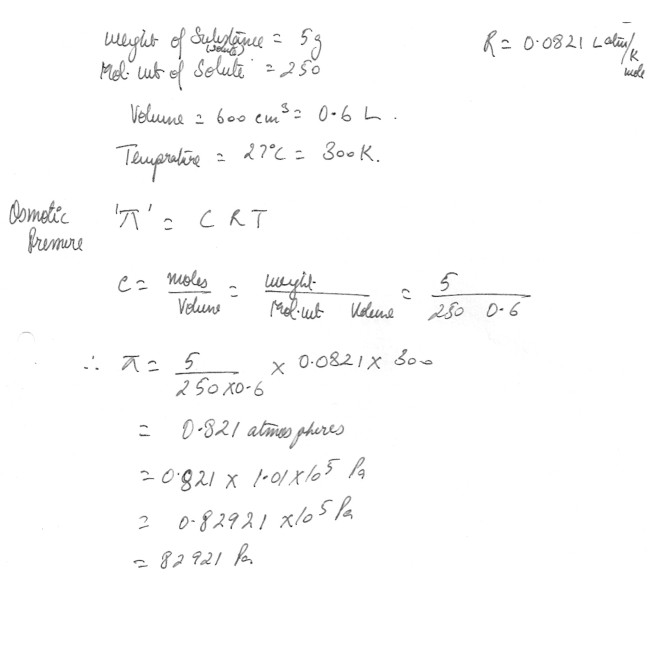 weight of Substance = 5g
(solute)
R = 0.0821 L atm/K mole
Mol. wt of Solute = 250
Volume = 600 cm³ = 0.6 L.
Temprature = 27°C = 300K.
Osmotic Pressure 'π' = C R T
C = moles/Volume = weight/Mol.wt Volume = 5/250 0.6
∴ π = 5/250×0.6 × 0.0821 × 300
= 0.821 atmospheres
= 0.821 × 1.01×10⁵ Pa
= 0.82921 ×10⁵ Pa
= 82921 Pa